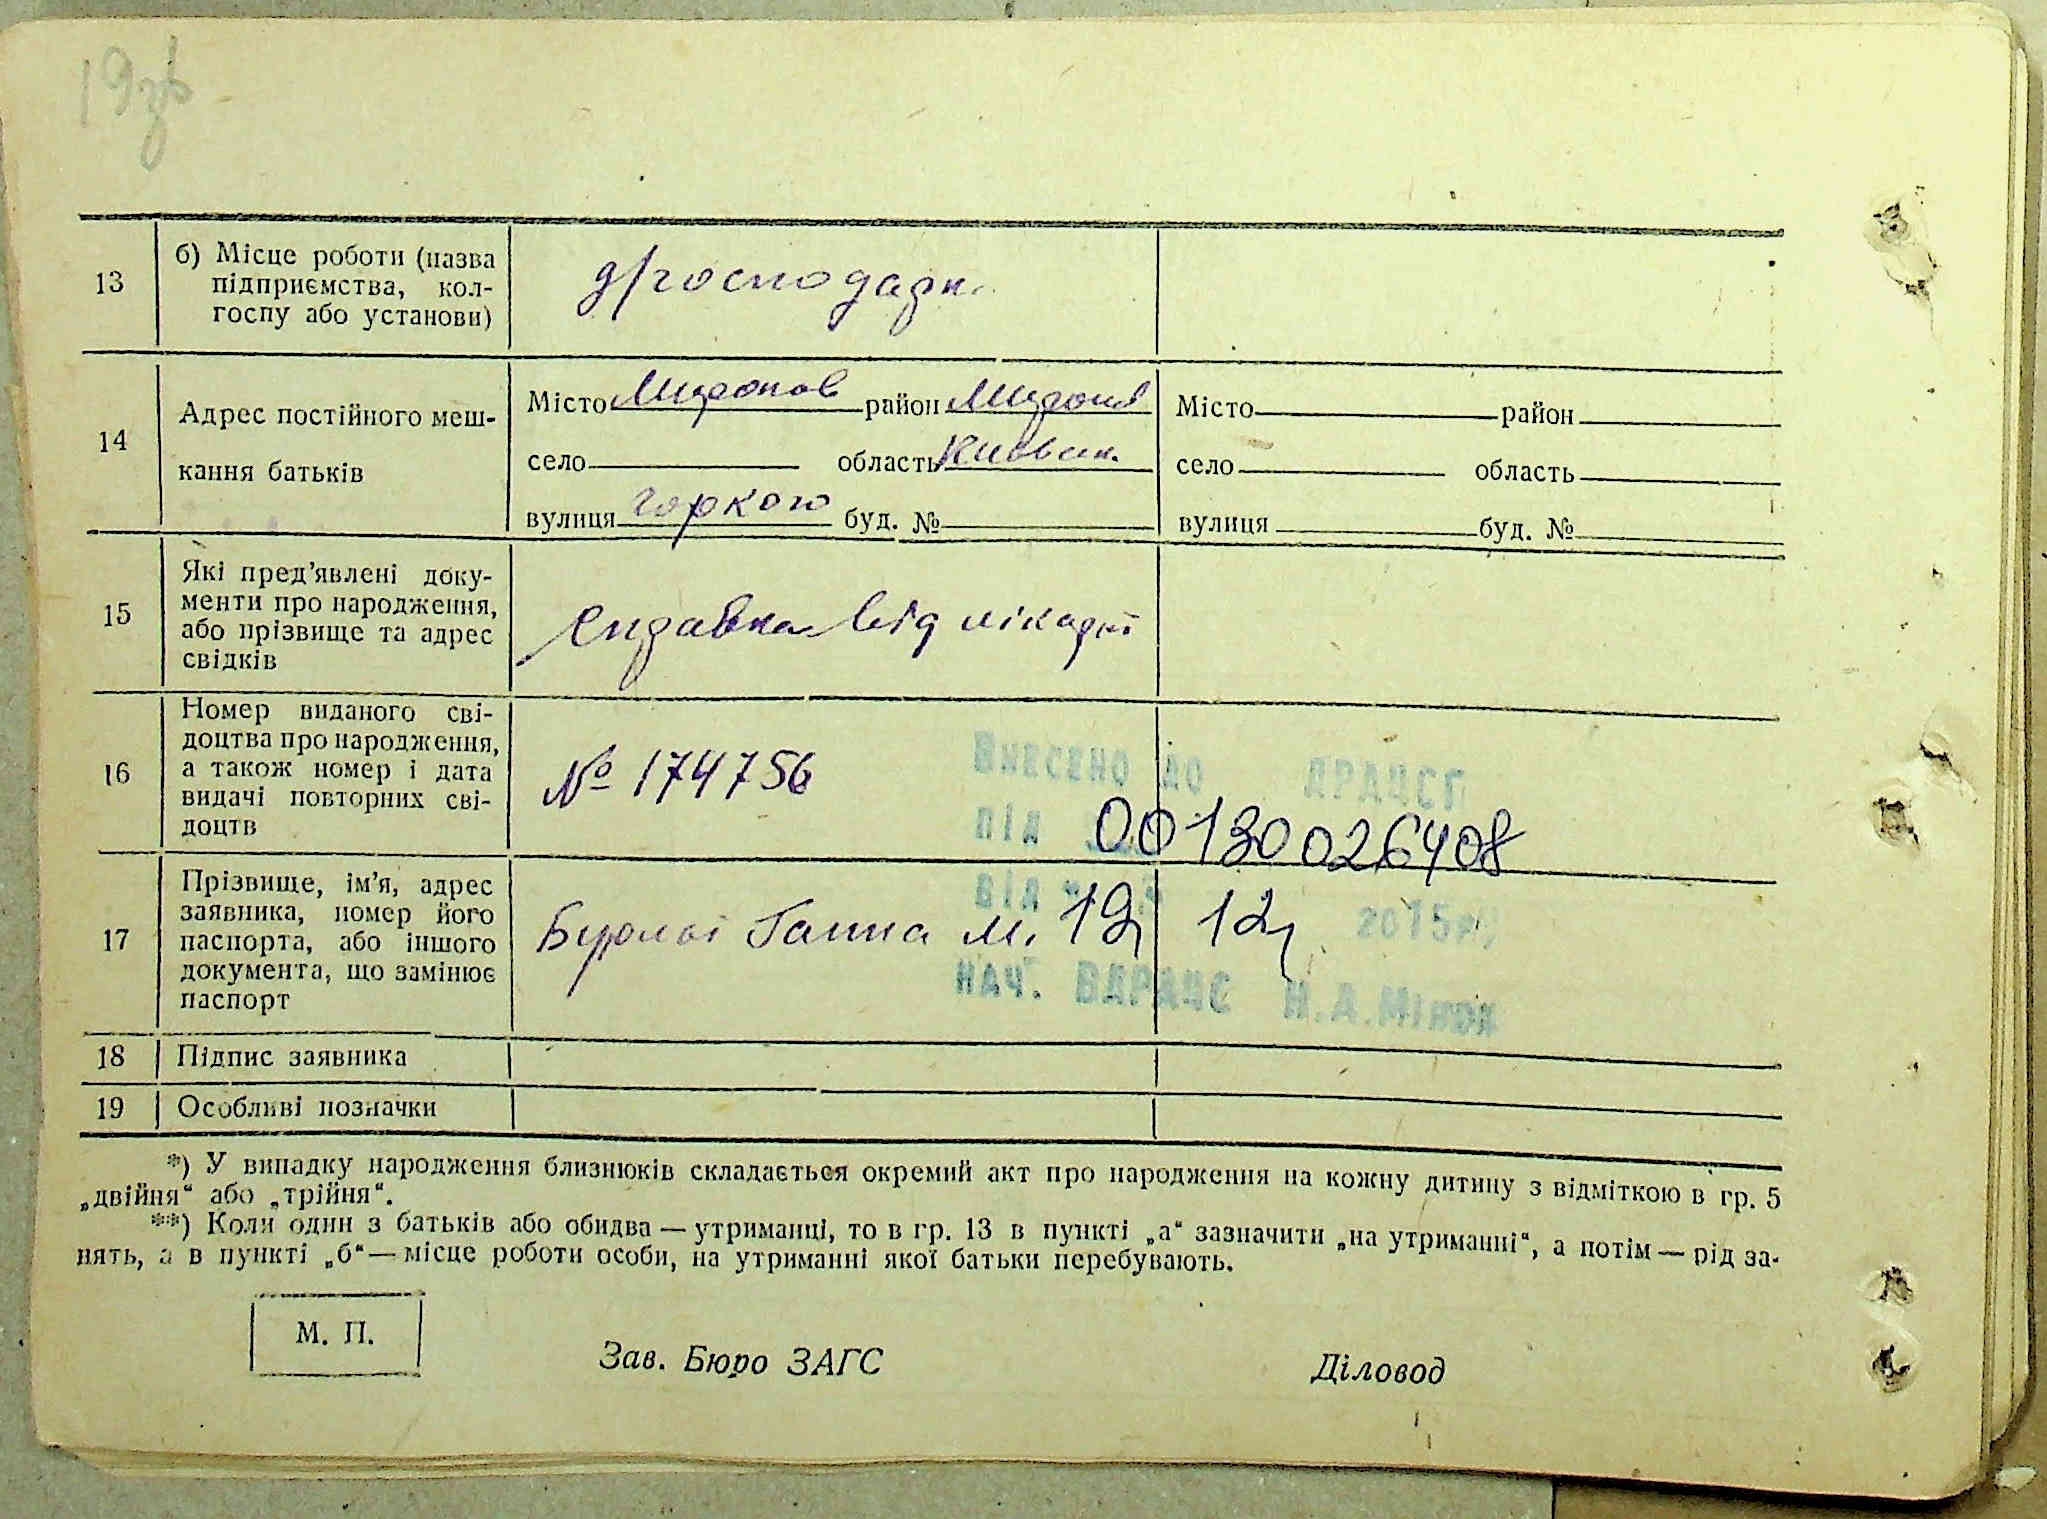 19зв
13
б) Місце роботи (назва
підприємства, кол-
госпу або установи)
д/господарк.
14
Адрес постійного меш-
кання батьків
Місто Миронов район Миронів
село область Київськ.
вулиця Горкого буд. №
Місто район
село область
вулиця буд. №
15
Які пред'явлені доку-
менти про народження,
або прізвище та адрес
свідків
Справка від лікарні
16
Номер виданого сві-
доцтва про народження,
а також номер і дата
видачі повторних сві-
доцтв
№ 174756
Внесено до ДРАЦСГ
під 00130026408
від 19 12 2015р
нач. ВДРАЦС Н.А.
17
Прізвище, ім'я, адрес
заявника, номер його
паспорта, або іншого
документа, що замінює
паспорт
Ганна М.
18
Підпис заявника
19
Особливі позначки
*) У випадку народження близнюків складається окремий акт про народження на кожну дитину з відміткою в гр. 5
„двійня“ або „трійня“.
**) Коли один з батьків або обидва — утриманці, то в гр. 13 в пункті „а“ зазначити „на утриманні“, а потім — рід за-
нять, а в пункті „б“ — місце роботи особи, на утриманні якої батьки перебувають.
М. П.
Зав. Бюро ЗАГС
Діловод